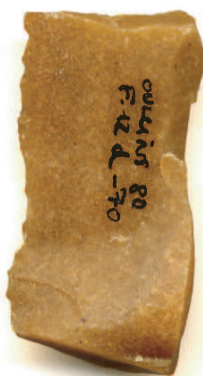 OULLINS 80
F.12 d -70